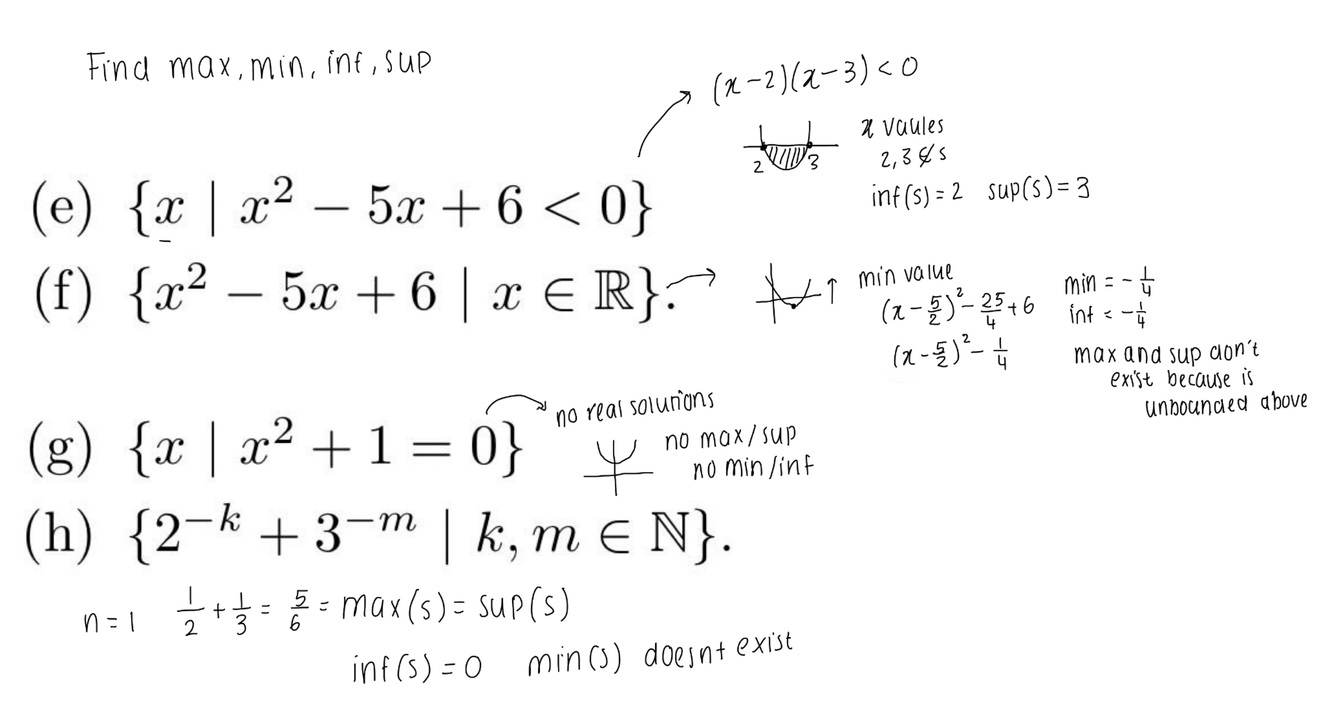 Find max, min, inf, sup
(x-2)(x-3) < 0
2 3
x vaules
2,3 ∉ s
inf(s) = 2 sup(s) = 3
(e) {x | x² − 5x + 6 < 0}
(f) {x² − 5x + 6 | x ∈ ℝ}.
min value
(x - 5/2)² - 25/4 + 6
(x - 5/2)² - 1/4
min = - 1/4
inf = - 1/4
max and sup don't
exist because is
unbounded above
(g) {x | x² + 1 = 0}
no real solutions
no max/sup
no min/inf
(h) {2⁻ᵏ + 3⁻ᵐ | k, m ∈ ℕ}.
n = 1 1/2 + 1/3 = 5/6 = max(s) = sup(s)
inf(s) = 0 min(s) doesnt exist